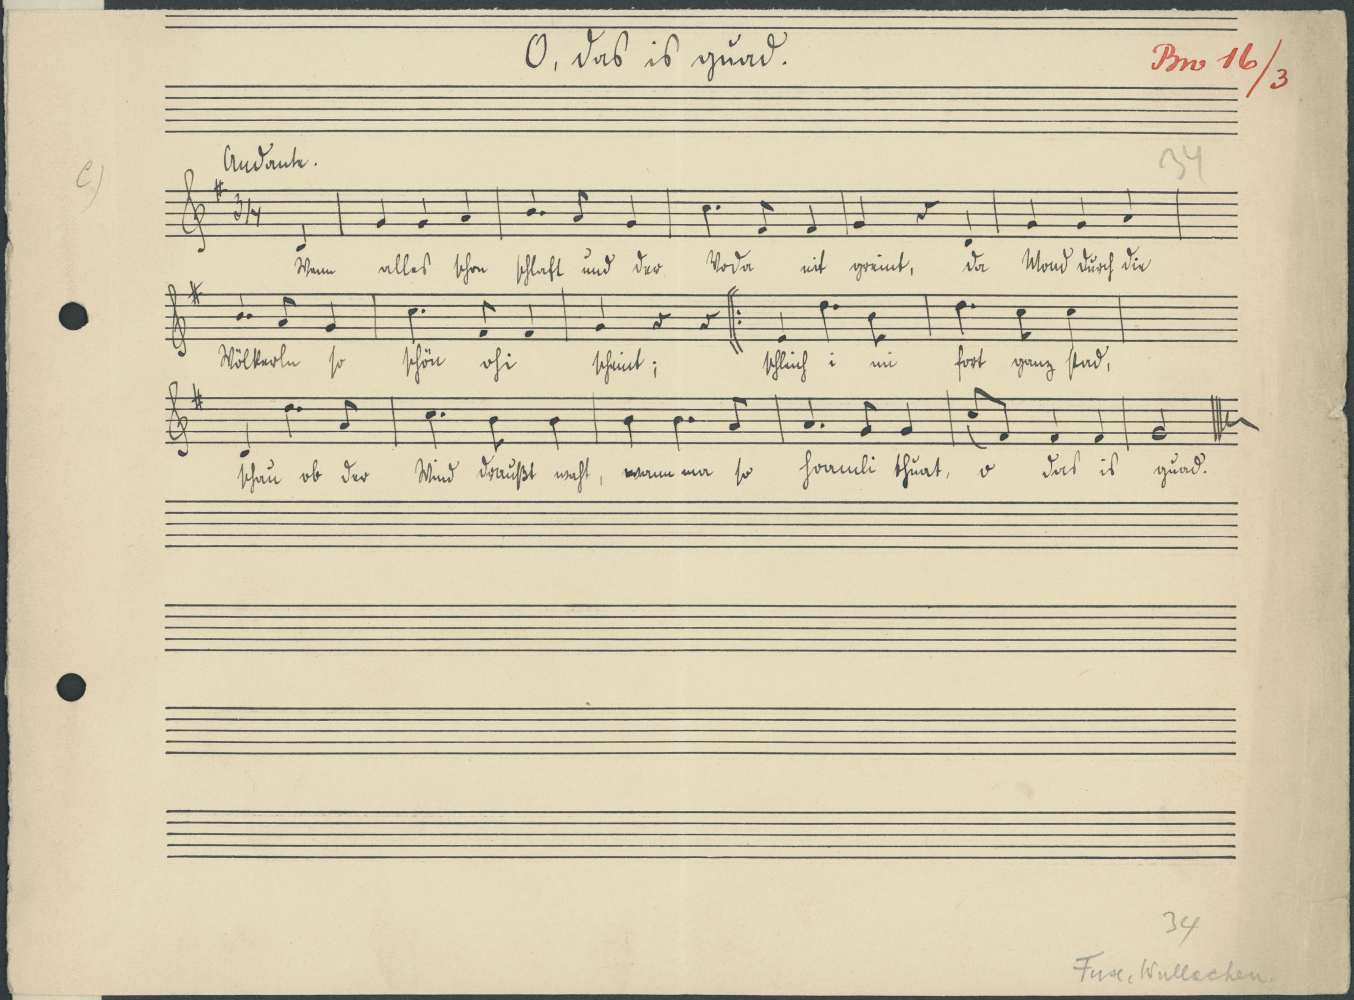 O, das is guad.
Bw 16/3
34
C)
Andante.
3/4
Wenn alles schon schlaft und der Voda nit greint, da Mond durch die
Wölkerln so schön ohi scheint; schleich i mi fort ganz stad,
schau ob der Wind draußt waht, wann ma so hoamli thuat, o das is guad.
34